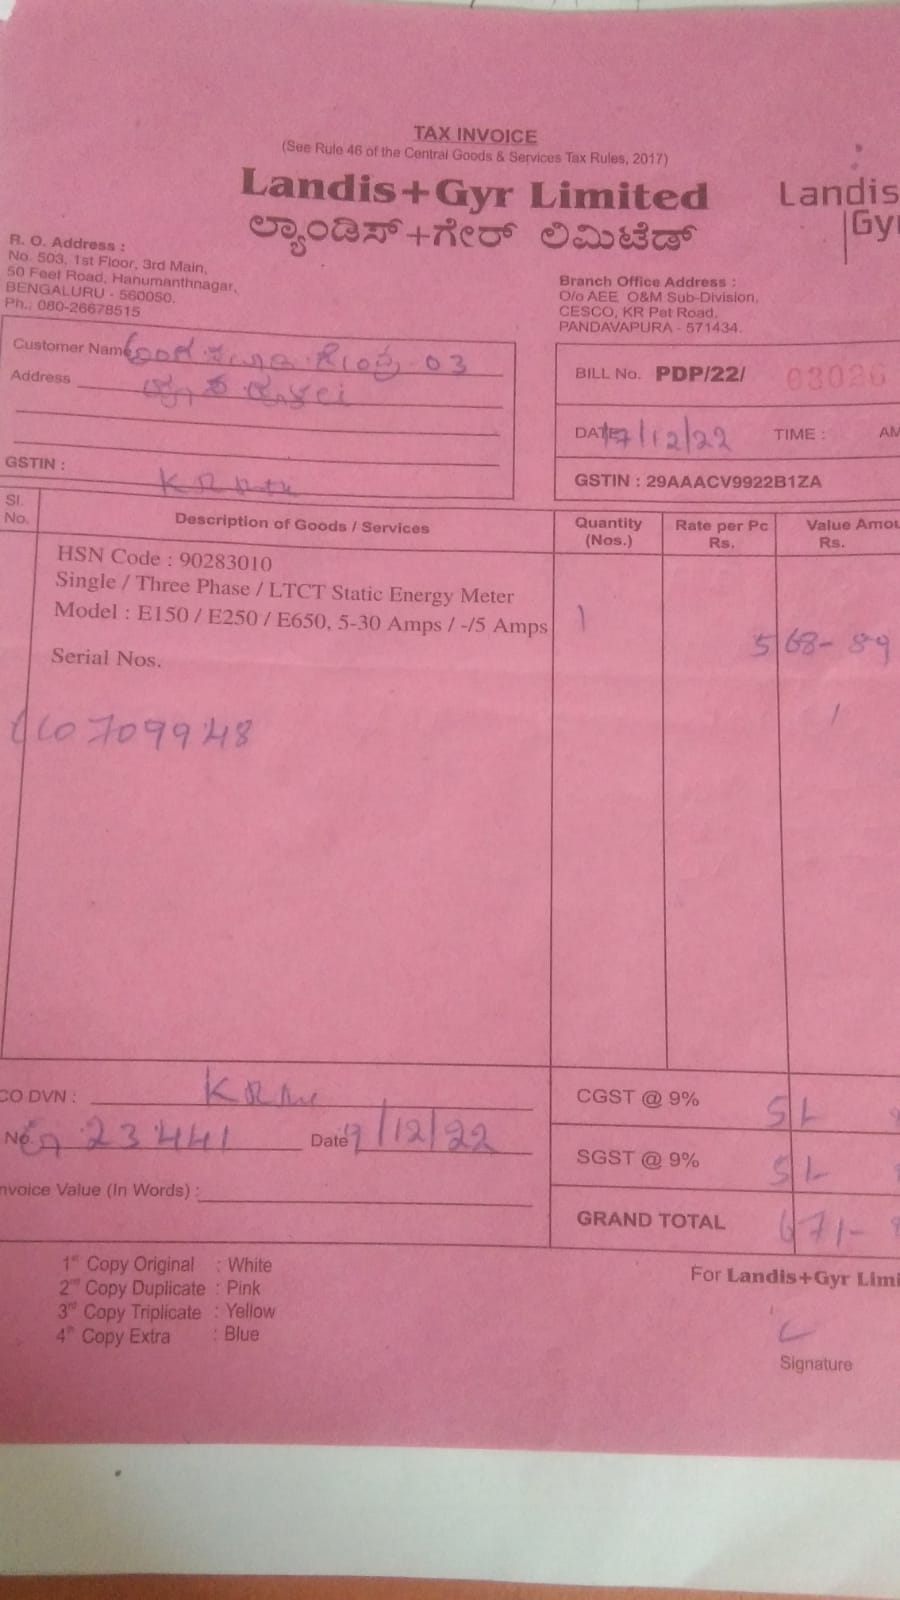 TAX INVOICE
(See Rule 46 of the Central Goods & Services Tax Rules, 2017)
Landis+Gyr Limited
ಲ್ಯಾಂಡಿಸ್+ಗೇರ್ ಲಿಮಿಟೆಡ್
Landis
Gyr
R. O. Address :
No. 503, 1st Floor, 3rd Main,
50 Feet Road, Hanumanthnagar,
BENGALURU - 560050.
Ph.: 080-26678515
Branch Office Address :
O/o AEE O&M Sub-Division,
CESCO, KR Pet Road,
PANDAVAPURA - 571434.
Customer Name 03
Address
GSTIN :
BILL No. PDP/22/ 03026
DATE 7/12/22 TIME : AM
GSTIN : 29AAACV9922B1ZA
Sl. No. Description of Goods / Services Quantity (Nos.) Rate per Pc Rs. Value Amou Rs.
HSN Code : 90283010
Single / Three Phase / LTCT Static Energy Meter
Model : E150 / E250 / E650, 5-30 Amps / -/5 Amps 1
568-89
Serial Nos.
0709948
CO DVN :
No 23441 Date 9/12/22
nvoice Value (In Words) :
CGST @ 9% 51
SGST @ 9% 51
GRAND TOTAL 671-
1st Copy Original : White
2nd Copy Duplicate : Pink
3rd Copy Triplicate : Yellow
4th Copy Extra : Blue
For Landis+Gyr Limi
Signature